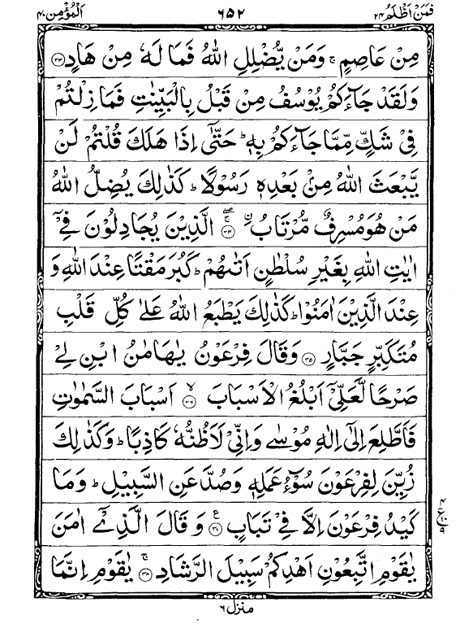 فمن اظلم ٢٤ ٦٥٢ المؤمن ٤٠
مِنْ عَاصِمٍ ۚ وَمَنْ يُّضْلِلِ اللّٰهُ فَمَا لَهٗ مِنْ هَادٍ ﴿۳۳﴾
وَلَقَدْ جَآءَكُمْ يُوْسُفُ مِنْ قَبْلُ بِالْبَيِّنٰتِ فَمَا زِلْتُمْ
فِيْ شَكٍّ مِّمَّا جَآءَكُمْ بِهٖ ؕ حَتّٰٓى اِذَا هَلَكَ قُلْتُمْ لَنْ
يَّبْعَثَ اللّٰهُ مِنْۢ بَعْدِهٖ رَسُوْلًا ؕ كَذٰلِكَ يُضِلُّ اللّٰهُ
مَنْ هُوَ مُسْرِفٌ مُّرْتَابُ ﴿۳۴﴾ الَّذِيْنَ يُجَادِلُوْنَ فِيْٓ
اٰيٰتِ اللّٰهِ بِغَيْرِ سُلْطٰنٍ اَتٰىهُمْ ؕ كَبُرَ مَقْتًا عِنْدَ اللّٰهِ وَ
عِنْدَ الَّذِيْنَ اٰمَنُوْا ؕ كَذٰلِكَ يَطْبَعُ اللّٰهُ عَلٰى كُلِّ قَلْبِ
مُتَكَبِّرٍ جَبَّارٍ ﴿۳۵﴾ وَقَالَ فِرْعَوْنُ يٰهَامٰنُ ابْنِ لِيْ
صَرْحًا لَّعَلِّيْٓ اَبْلُغُ الْاَسْبَابَ ﴿۳۶﴾ اَسْبَابَ السَّمٰوٰتِ
فَاَطَّلِعَ اِلٰٓى اِلٰهِ مُوْسٰى وَاِنِّيْ لَاَظُنُّهٗ كَاذِبًا ؕ وَكَذٰلِكَ
زُيِّنَ لِفِرْعَوْنَ سُوْٓءُ عَمَلِهٖ وَصُدَّ عَنِ السَّبِيْلِ ؕ وَمَا
كَيْدُ فِرْعَوْنَ اِلَّا فِيْ تَبَابٍ ﴿۳۷﴾ وَقَالَ الَّذِيْٓ اٰمَنَ
يٰقَوْمِ اتَّبِعُوْنِ اَهْدِكُمْ سَبِيْلَ الرَّشَادِ ﴿۳۸﴾ يٰقَوْمِ اِنَّمَا
منزل ٦